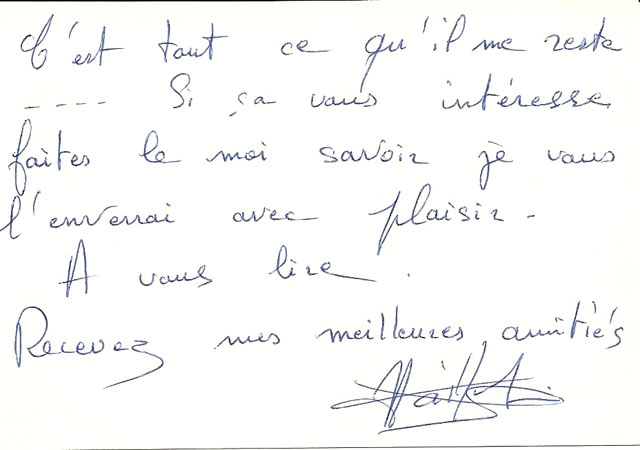 C'est tout ce qu'il me reste
---- Si ça vous intéresse
faites le moi savoir je vous
l'enverrai avec plaisir -
A vous lire .
Recevez mes meilleures amitiés